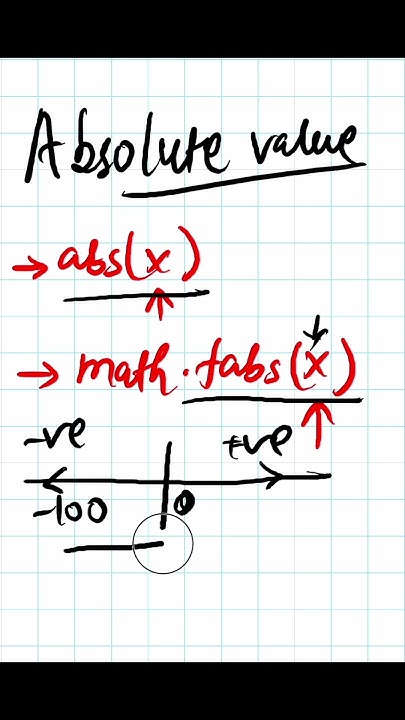 Absolute value
→ abs(x)
→ math.fabs(x)
-ve +ve
-100 0